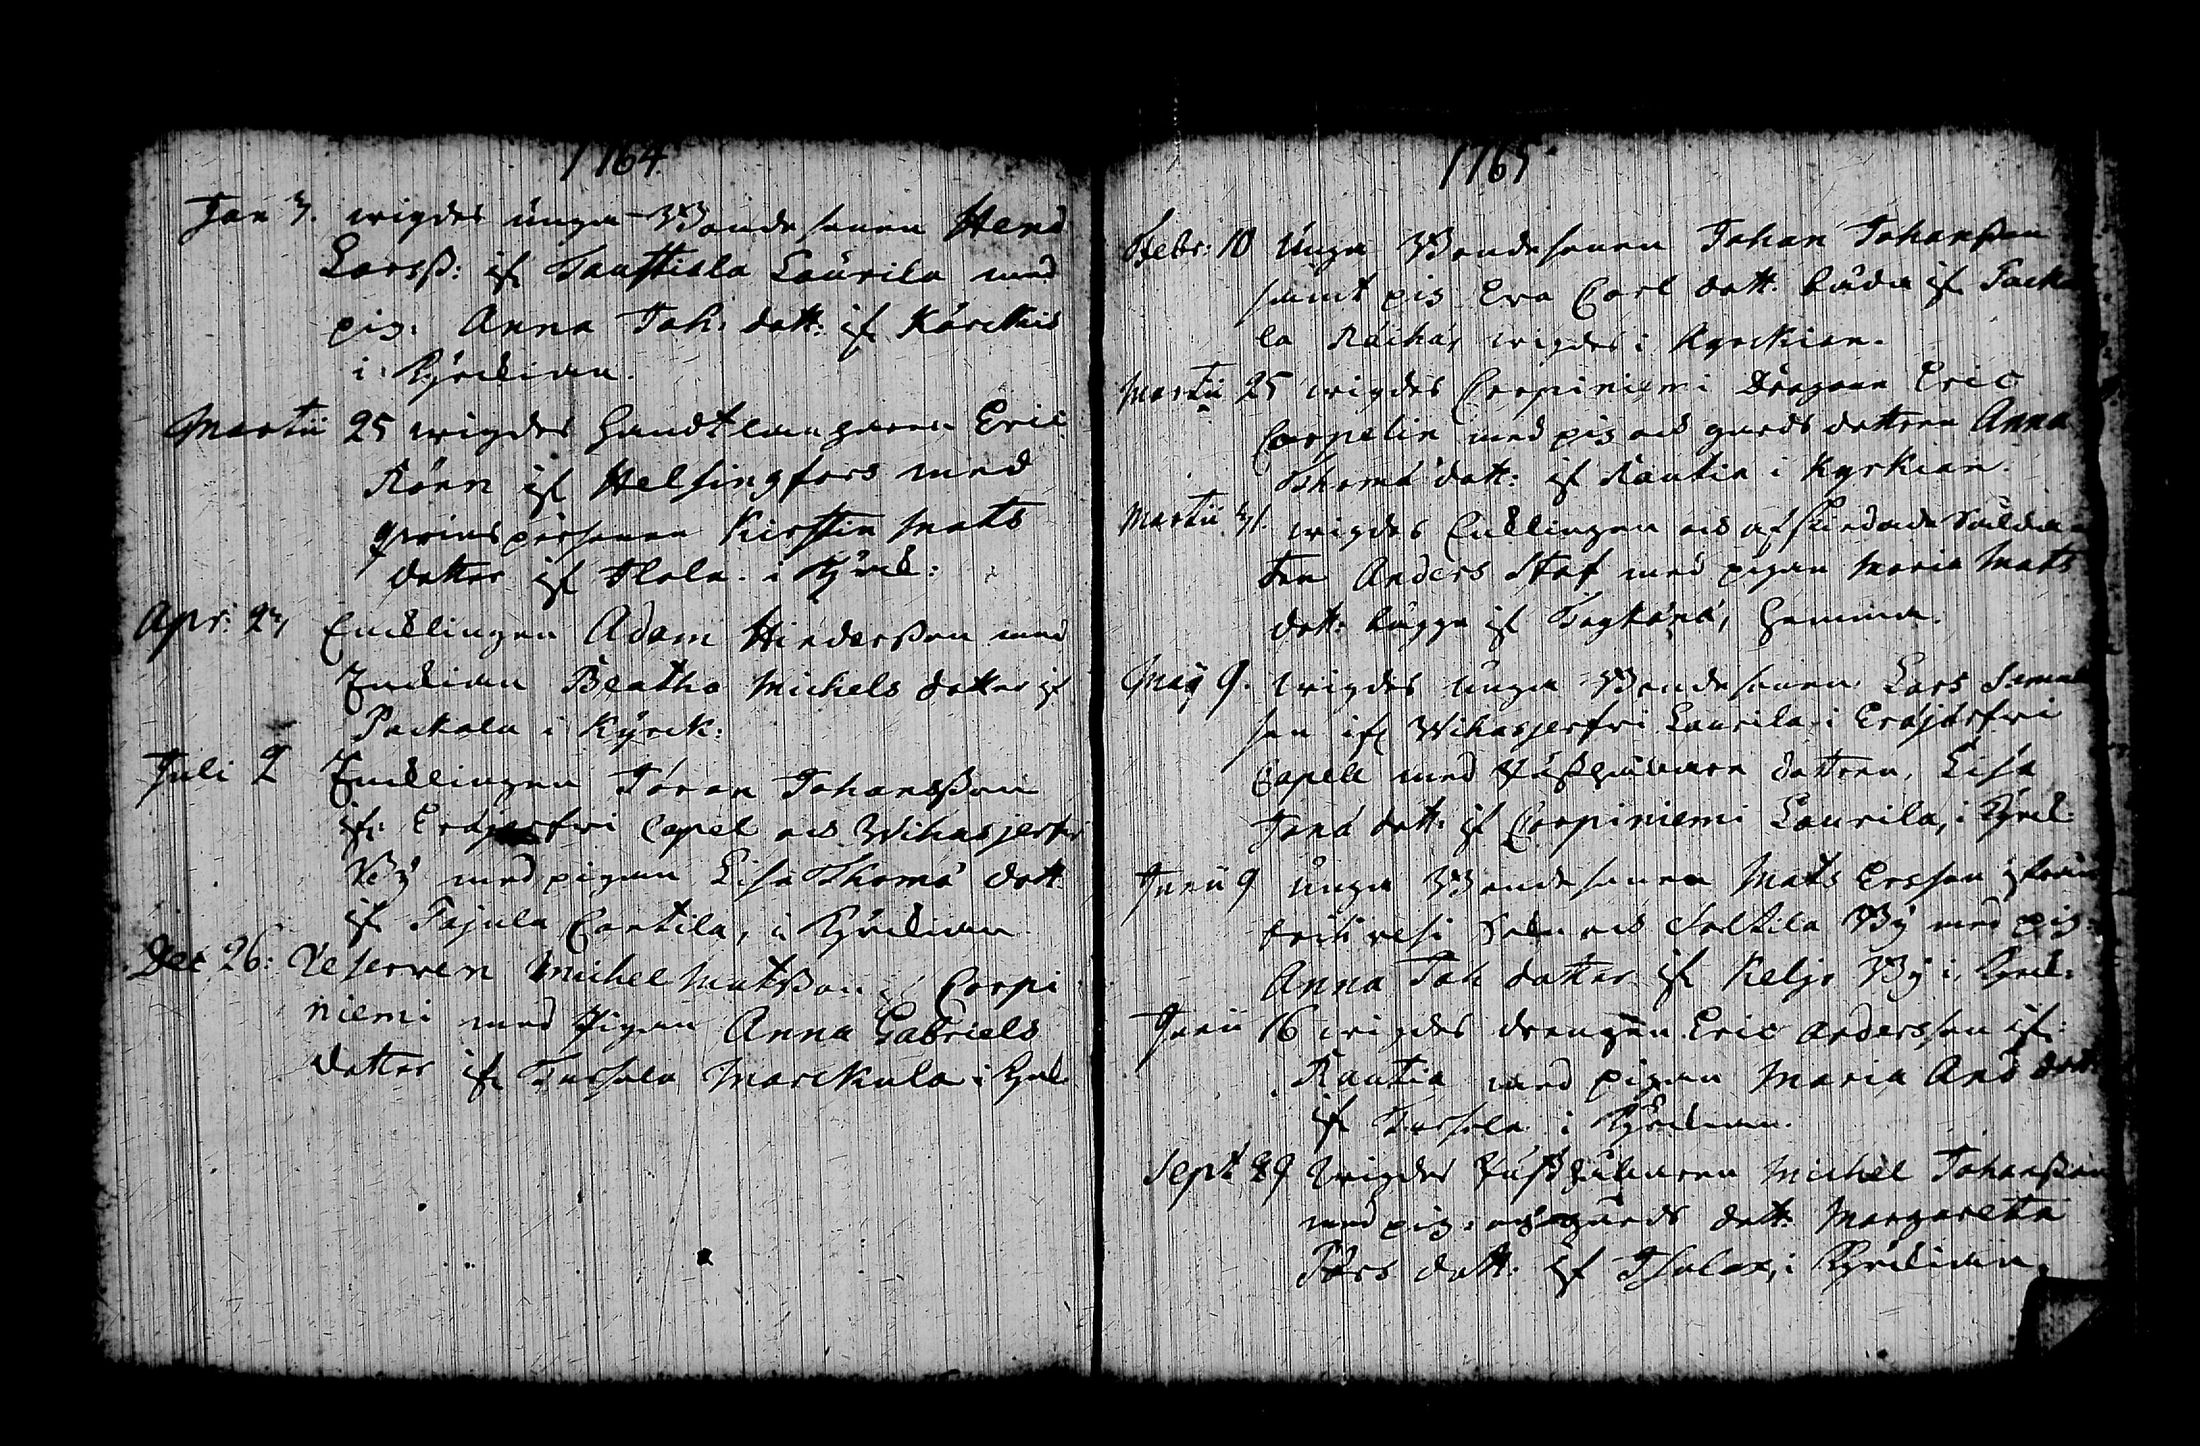 1764
Jan 3. wigdes unga Bonde sonen Hend
Larsß: if Tauttiala Laurila med
pig. Anna Joh: dott: if Kärckis
i Kyrckian.
Martii 25 wigdes Handtlangaren Eric
Rönn if Helsingfors med
qwins persohnen Kirstin Mats
dotter if Ilola i Kyrck:
Apr: 23 Encklingen Adam Hindersßon med
Enckian Beatha Michels dotter if
Packala i Kyrck:
Juli 2 Enklingen Jöran Johansßon
if: Eräjerfwi Capel och Wihasjerfwi
By med pigan Lisa Thomæ dott
if Pajula Contila, i Kyrckian
Dec 26: Reserven Michel Matsßon if Corpi
niemi med Pigan Anna Gabriels
dotter if Marckula i Kyrck
1765
Febr: 10 Unga Bondesonen Johan Johansßon
samt pig Eva Carl dott. båda if Packa
la wigdes i Kyrckian.
Martii 25 wigdes Corpiniemi Dragon Eric
Corpelin med pig och gårds dottren Anna
Thomæ dott: if Rautia i Kyrkian.
Martii 31. wigdes Encklingen och afskedade Solda
ten Anders Staf med pigan Maria Mats
dott: bägge if hemma.
Maij 9. wigdes unga Bondesonen Lars Samuel
son if Wihasjerfwi Laurila i Eräjärfwi
Capell med dottren, Lisa
dott: if Corpiniemi Laurila, i Kyrck:
Junii 9 unga Bondesonen Mats Ersson ifrån
Sahn och Soltila By med pig:
Anna Joh dotter if Keljo By i Kyrck:
Junii 16 wigdes drengen Eric Andersson if:
Rautia med pigan Maria And dott
if i Kyrckian.
Sept 29 wigdes Michel Johansßon
med pig. och gårds dott: Margareta
dott: if i Kyrckian.